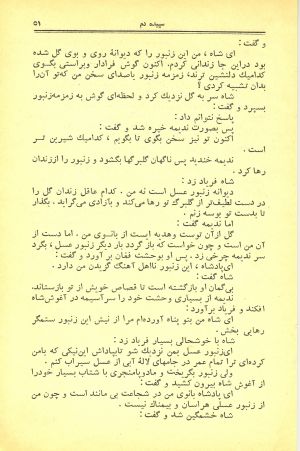 سپیده دم ۵۱
و گفت :
ای شاه ، من این زنبور را که دیوانهٔ روی و بوی گل شده
بود دراین جا زندانی کردم. اکنون گوش فرادار وبراستی بگوی
کدامیك دلنشین ترند، زمزمه زنبور یاصدای سخن من که تو آن‌را
بدان تشبیه کردی ؟
شاه سر به گل نزدیك کرد و لحظه‌ای گوش به زمزمه‌زنبور
بسپرد و گفت :
پاسخ نتوانم داد :
پس بصورت ندیمه خیره شد و گفت :
اکنون تو نیز سخن بگوی تا بگویم ، کدامیك شیرین تر
است .
ندیمه خندید پس ناگهان گلبرگها بگشود و زنبور را اززندان
رها کرد .
شاه فریاد زد :
دیوانه زنبور عسل است نه من . کدام عاقل زندان گل را
در دست لطیف‌تر از گلبرگ تو رها می‌کند و بازادی می‌گراید. بگذار
تا بدست تو بوسه زنم .
اما ندیمه گفت :
گل ازآن توست وهدیه ایست از بانوی من . اما دست از
آن من است و چون خواست که باز گردد بار دیگر زنبور عسل ، بگرد
سر ندیمه چرخی زد . پس او بوحشت فغان بر آورد و گفت :
ای‌پادشاه ، این زنبور نااهل آهنگ گزیدن من دارد .
شاه گفت :
بی‌گمان او بازگشته است تا قصاص خویش از تو بازستاند.
ندیمه از بسیاری وحشت خود را سرآسیمه در آغوش‌شاه
افکند و فریاد برآورد :
ای شاه من بتو پناه آورده‌ام مرا از نیش این زنبور ستمگر
رهایی بخش .
شاه با خوشحالی بسیار فریاد زد :
ای‌زنبور عسل بمن نزدیك شو تاپاداش این‌نیکی که بامن
کرده‌ای ترا تمام عمر در جامهای لالهٔ آبی از عسل سیراب کنم .
ولی زنبور بگریخت و مادوپامنجری با شتاب بسیار خودرا
از آغوش شاه بیرون کشید و گفت :
ای پادشاه بانوی من در شجاعت بی مانند است و چون من
از زنبور عسلی هراسان و بیمناك نیست .
شاه خشمگین شد و گفت :